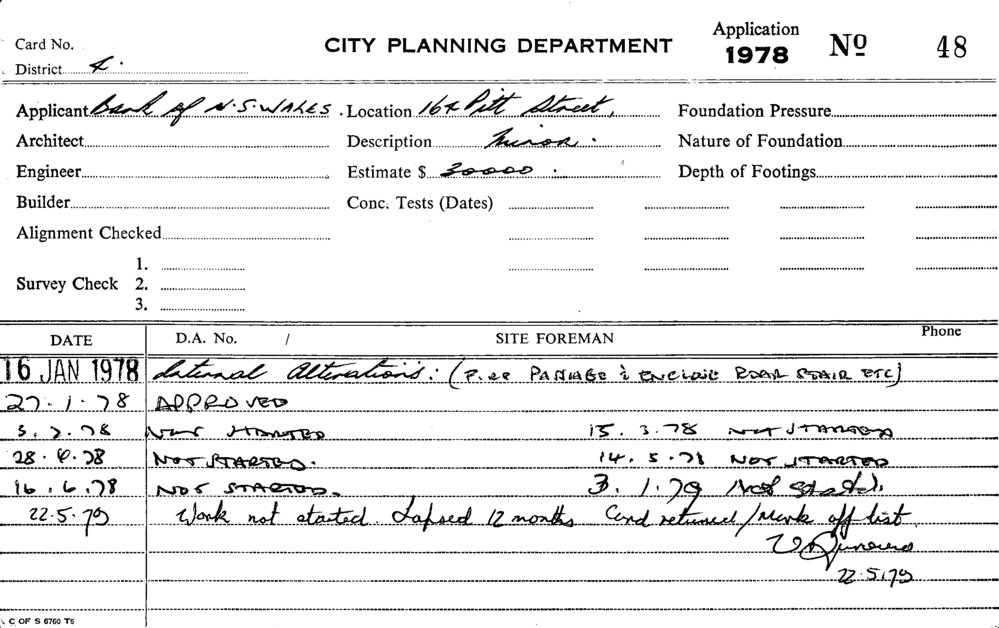 Card No.
CITY PLANNING DEPARTMENT
Application
1978
Nº 48
District 4.
Applicant Bank of N.S. WALES. Location 164 Pitt Street, Foundation Pressure
Architect Description Minor. Nature of Foundation
Engineer Estimate $ 30000. Depth of Footings
Builder Conc. Tests (Dates)
Alignment Checked
Survey Check 1.
2.
3.
DATE D.A. No. / SITE FOREMAN Phone
16 JAN 1978 Internal Alterations: (FIRE PASSAGE & ENCLOSE REAR STAIR ETC)
27.1.78 APPROVED
3.2.78 NOT STARTED 15.3.78 NOT STARTED
28.4.78 NOT STARTED. 14.5.78 NOT STARTED
16.6.78 NOT STARTED. 3.1.79 Not Started.
22.5.79 Work not started. Lapsed 12 months Card returned / Mark off list.
22.5.79
C OF S 6760 T6